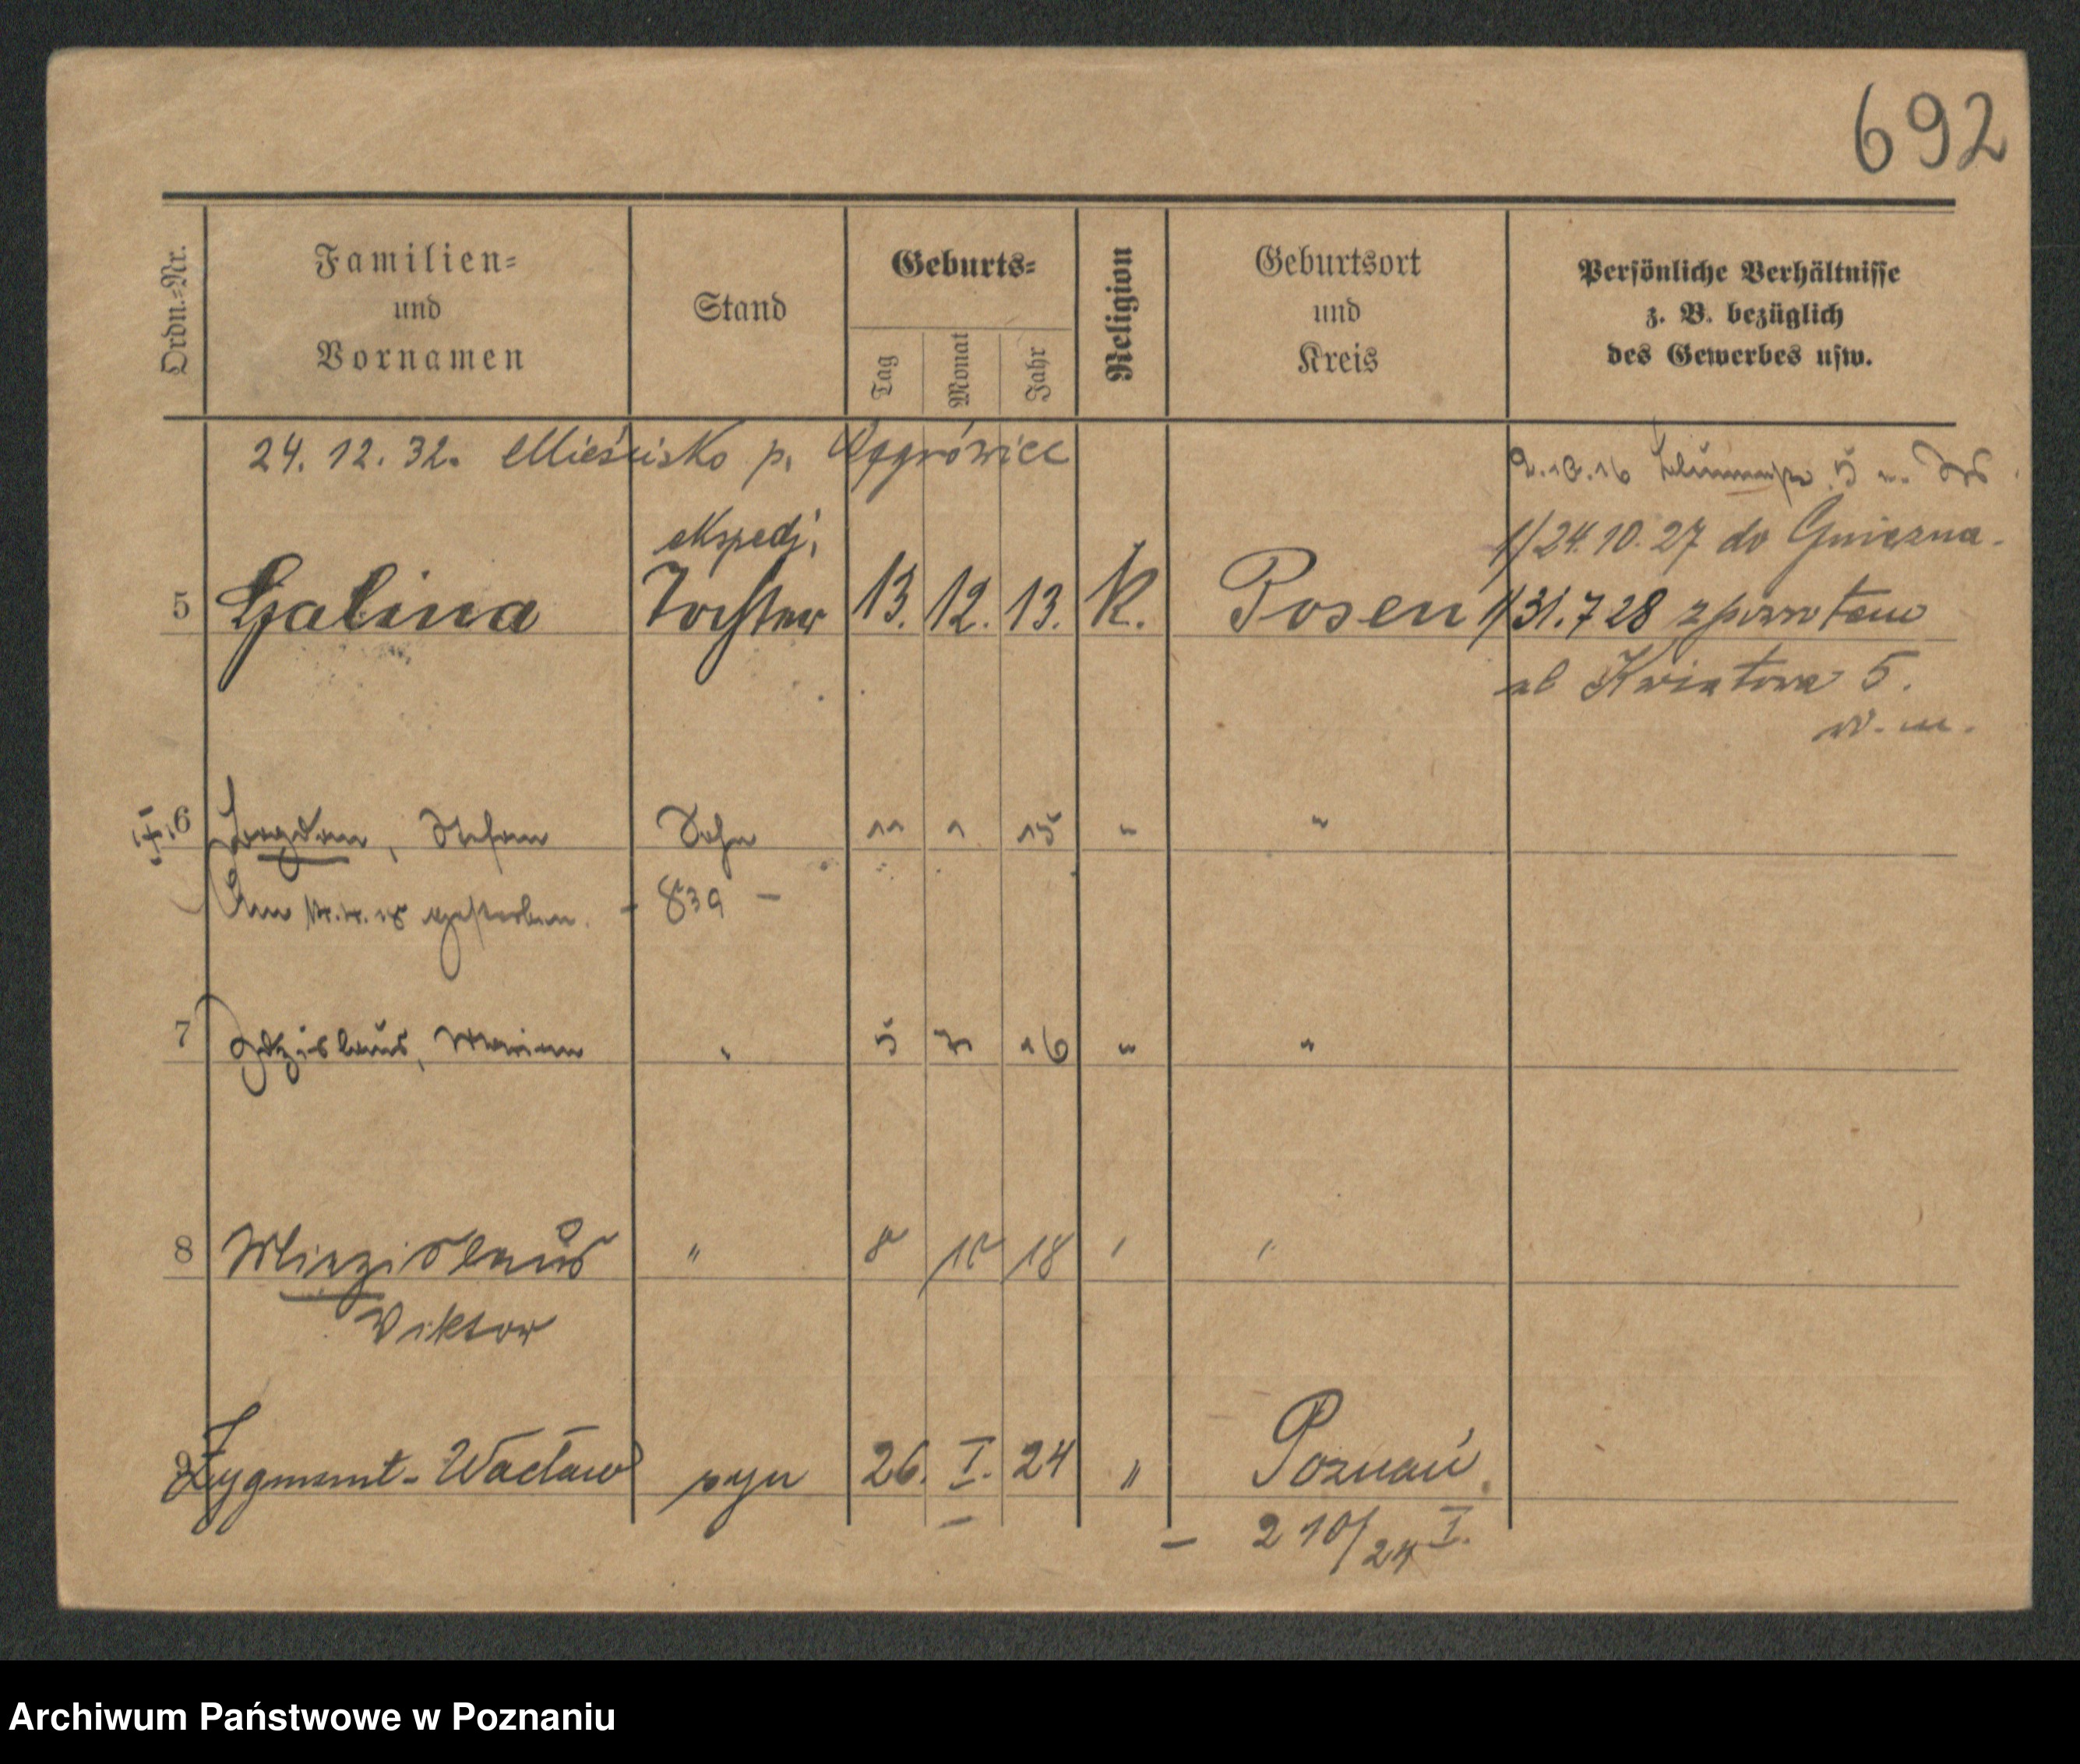 692
Ordn.-Nr.
Familien-
und
Vornamen
Stand
Geburts-
Tag
Monat
Jahr
Religion
Geburtsort
und
Kreis
Persönliche Verhältnisse
z. B. bezüglich
des Gewerbes usw.
24. 12. 32. Mieścisko p. Wągrówiec
2.10.16 5
ekspedj.
1/ 24. 10. 27 do Gniezna.
5 Galina Tochter 13. 12. 13. K. Posen 1/ 31. 7 28 z powrotem
ul Kwiatowa 5.
w. m.
6 Bogdan, Stefan Sohn 11 1 15 " "
Am gestorben. - 839 -
7 Zdzislaus, Marian " 5 7 16 " "
8 Miezislaus " 8 10 18 " "
Viktor
9 Zygmunt-Wacław syn 26. I. 24 " Poznań
- 210/24 I.
Archiwum Państwowe w Poznaniu